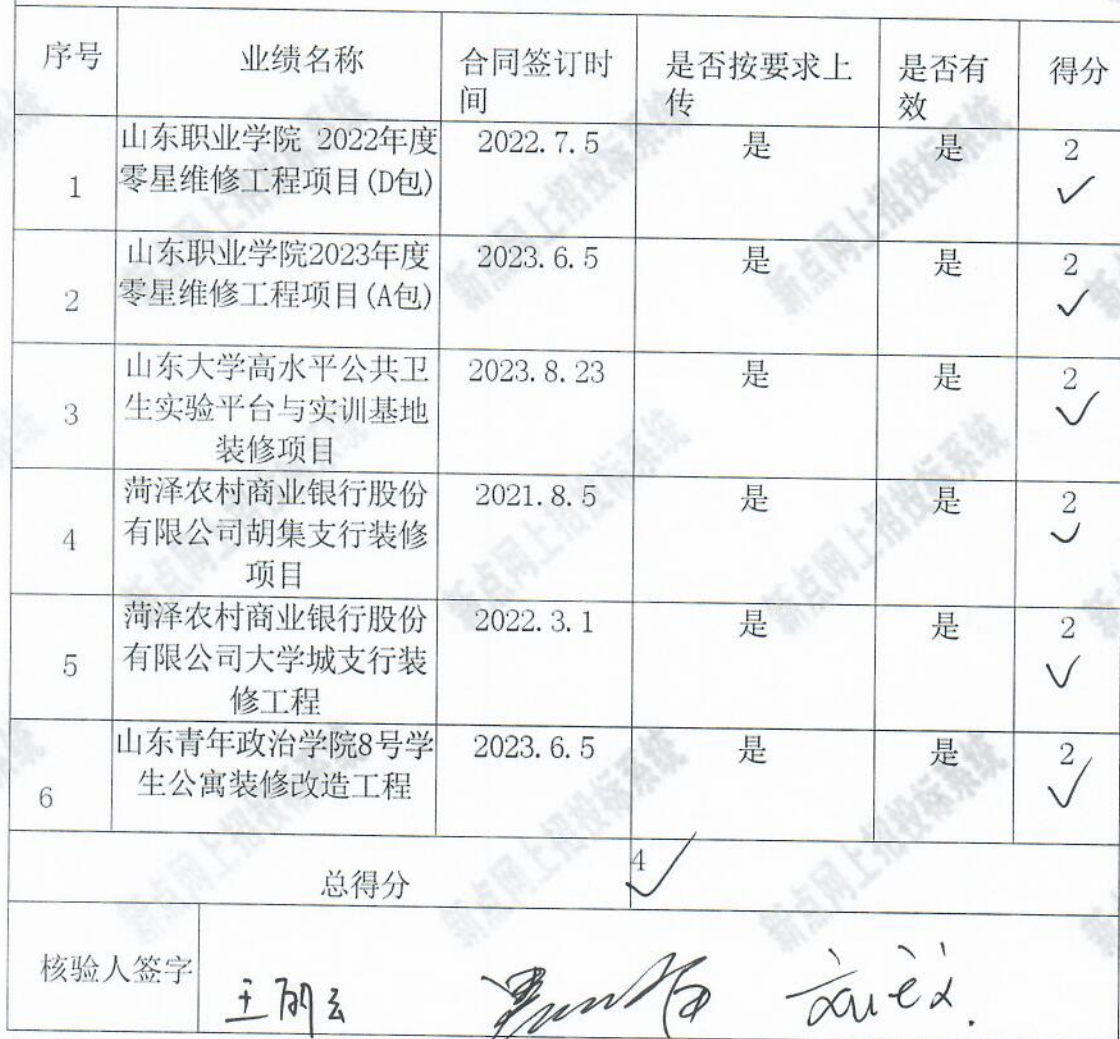 序号 业绩名称 合同签订时间 是否按要求上传 是否有效 得分
1 山东职业学院 2022年度零星维修工程项目(D包) 2022.7.5 是 是 2 ✓
2 山东职业学院2023年度零星维修工程项目(A包) 2023.6.5 是 是 2 ✓
3 山东大学高水平公共卫生实验平台与实训基地装修项目 2023.8.23 是 是 2 ✓
4 菏泽农村商业银行股份有限公司胡集支行装修项目 2021.8.5 是 是 2 ✓
5 菏泽农村商业银行股份有限公司大学城支行装修工程 2022.3.1 是 是 2 ✓
6 山东青年政治学院8号学生公寓装修改造工程 2023.6.5 是 是 2 ✓
总得分 4 ✓
核验人签字
新点网上招投标系统